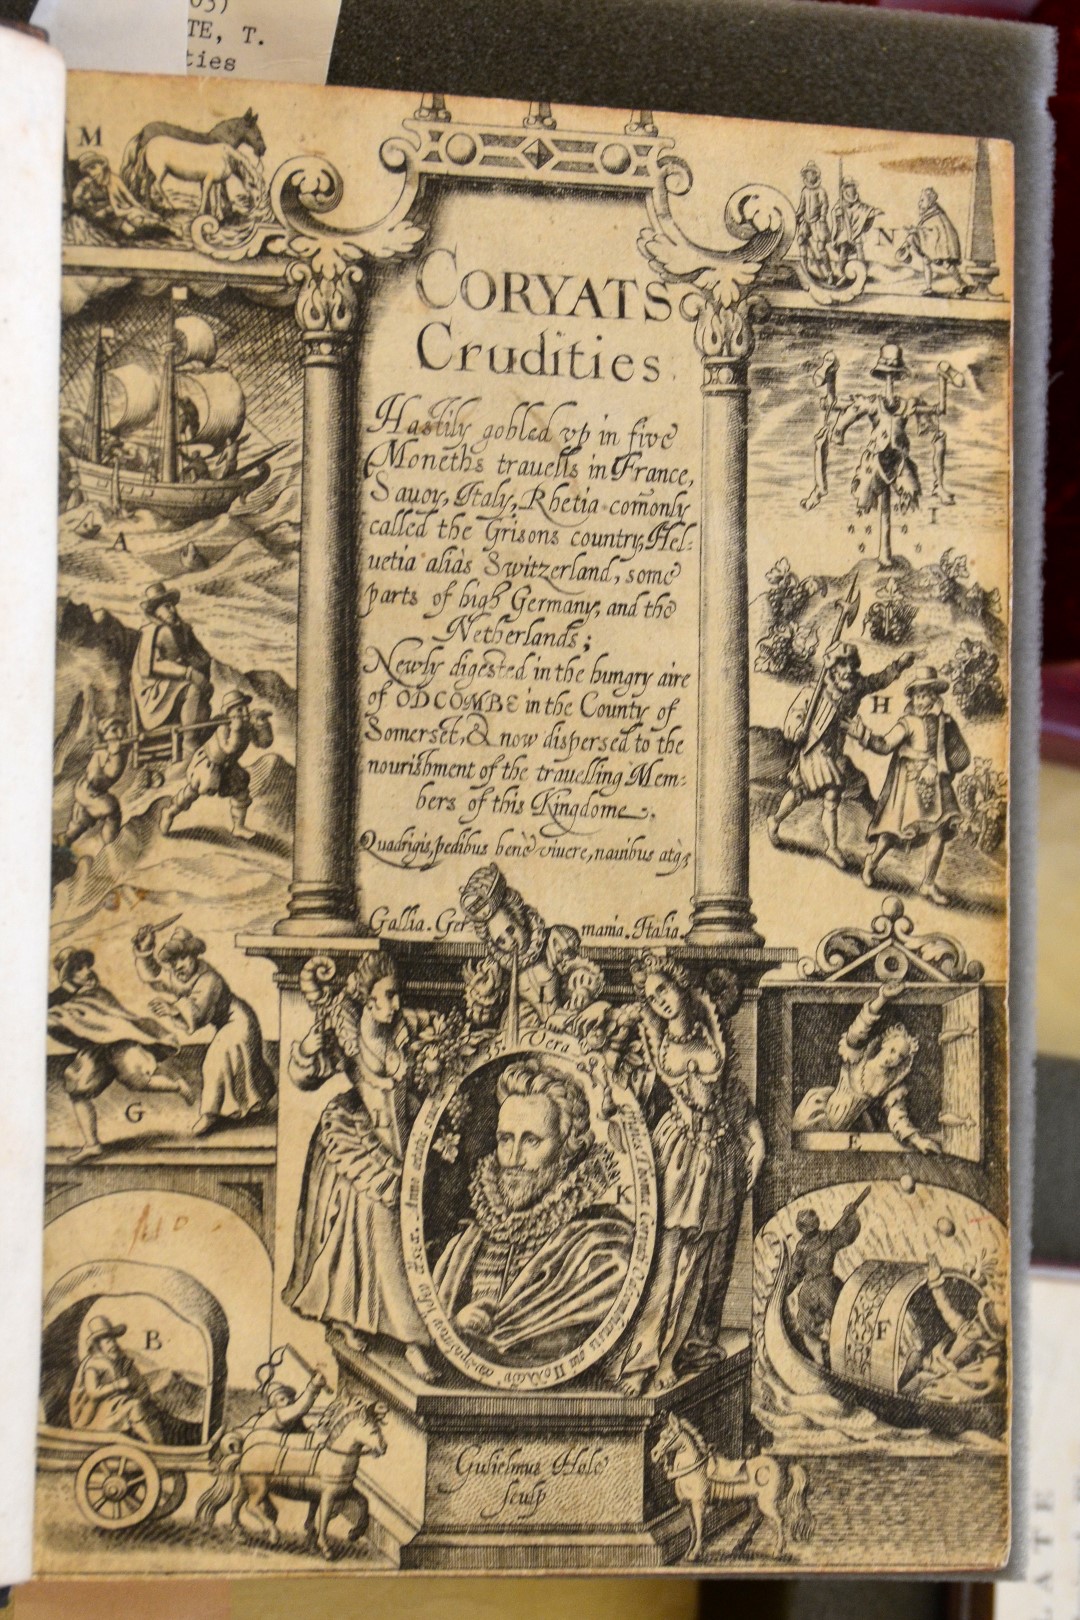 03)
TE, T.
ties
M
N
CORYATS
Crudities
Hastily gobled vp in five
Moneths trauells in France,
Sauoy, Italy, Rhetia comōnly
called the Grisons country, Hel-
uetia aliàs Switzerland, some
parts of high Germany, and the
Netherlands;
Newly digested in the hungry aire
of ODCOMBE in the County of
Somerset, & now dispersed to the
nourishment of the trauelling Mem-
bers of this Kingdome.
Quadrigis, pedibus benè viuere, nauibus atq3
Gallia. Ger
mania. Italia.
A
I
D
H
G
L
E
35. Vera
K
B
F
C
Gulielmus Hole
sculp
LATE